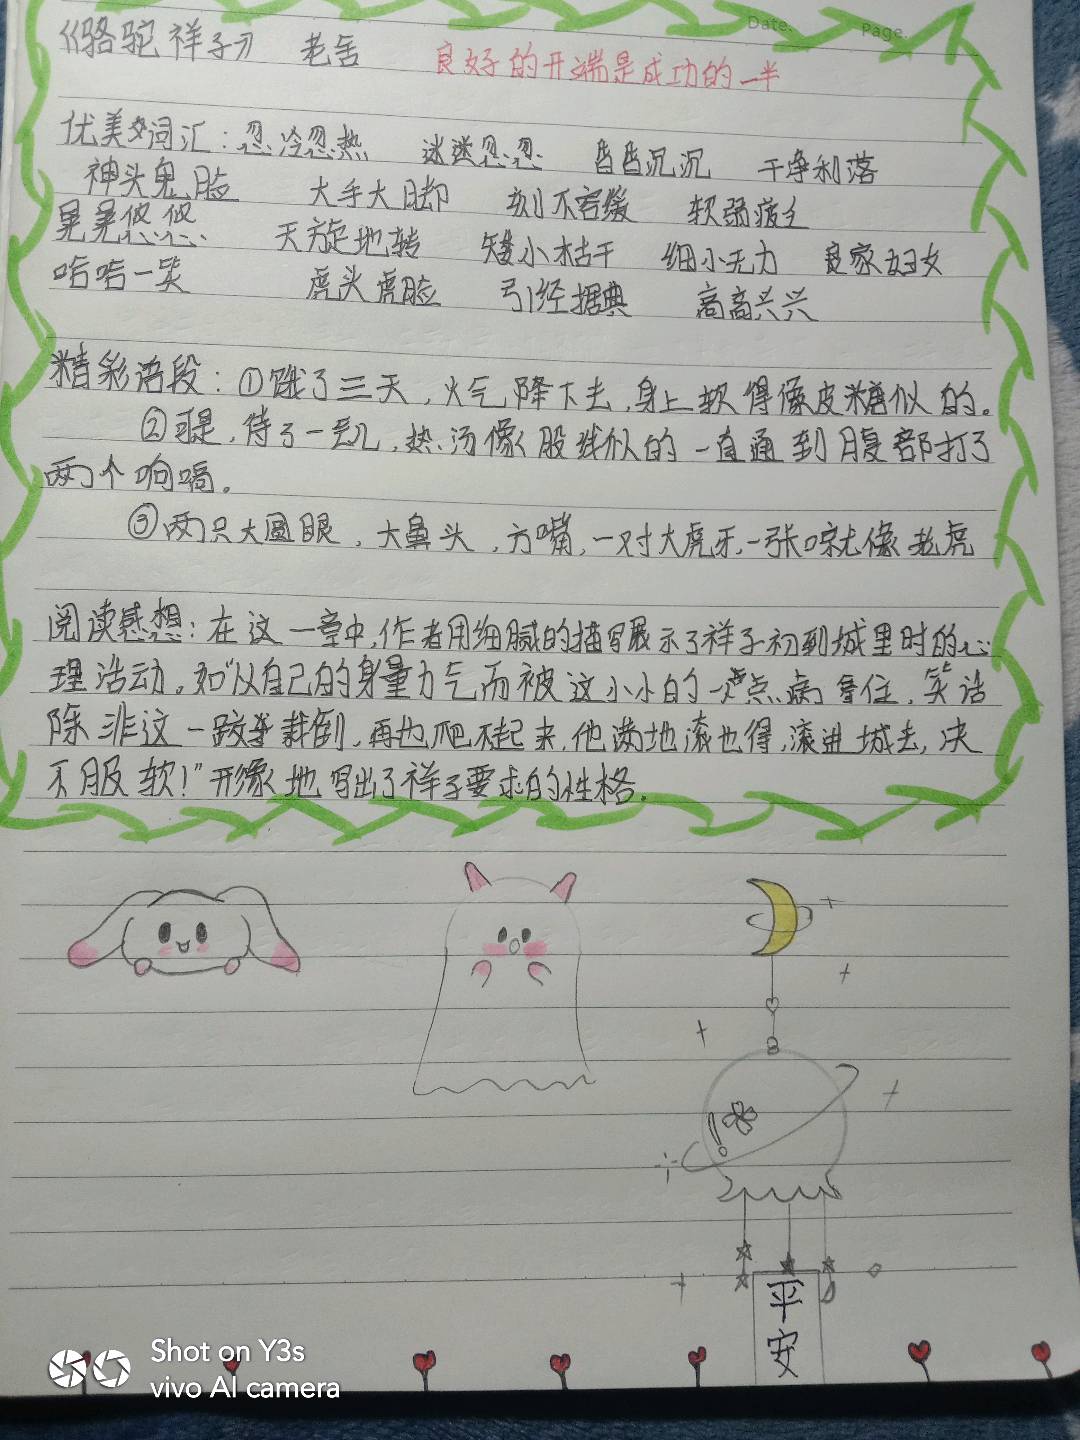 Date.    Page.
《骆驼祥子》 老舍 良好的开端是成功的一半
优美词汇：忍冷忍热 迷迷忽忽 昏昏沉沉 干净利落
神头鬼脸 大手大脚 刻不容缓 软弱疲乏
晃晃悠悠 天旋地转 矮小枯干 细小无力 良家妇女
哈哈一笑 虎头虎脸 引经据典 高高兴兴
精彩语段：①饿了三天，火气降下去，身上软得像皮糖似的。
②可是，待了一会儿，热汤像股线似的一直通到腹部打了
两个响嗝。
③两只大圆眼，大鼻头，方嘴，一对大虎牙，一张口就像老虎
阅读感想：在这一章中，作者用细腻的描写展示了祥子初到城里时的心
理活动。如"以自己的身量力气而被这小小的一点病拿住，笑话
除非这一跤栽倒，再也爬不起来，他满地滚也得滚进城去，决
不服软！"形象地写出了祥子要求的性格。
平
安
Shot on Y3s
vivo AI camera